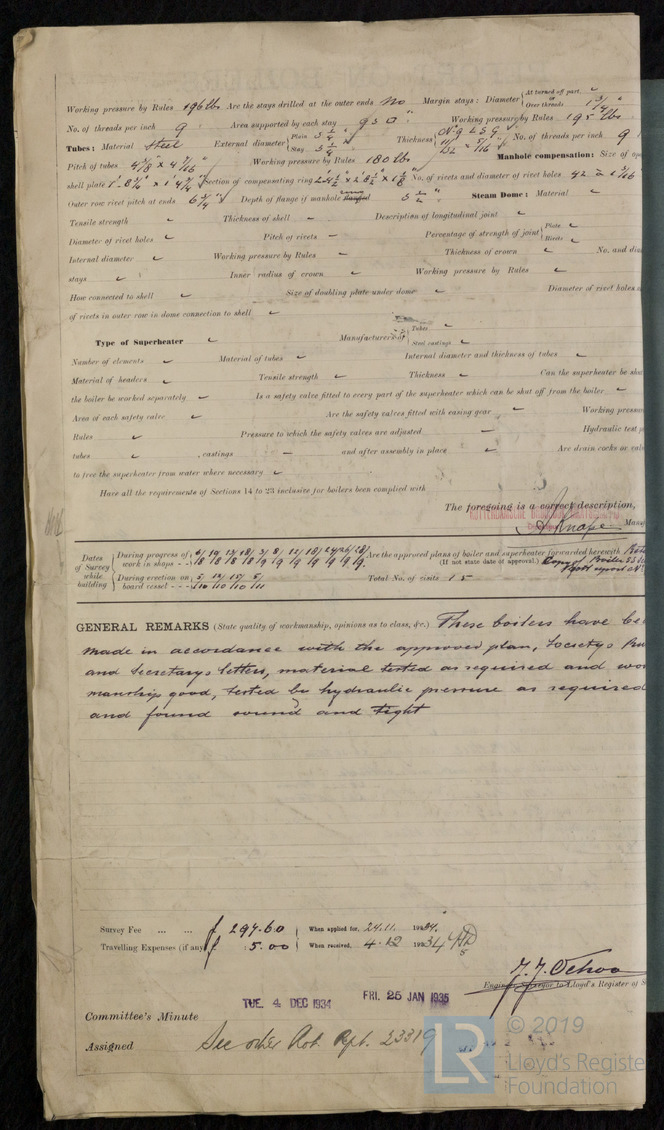 Working pressure by Rules 196 lbs Are the stays drilled at the outer ends No Margin stays: Diameter { At turned off part, ✓ Over threads 1 3/4"
No. of threads per inch 9 Area supported by each stay 93 □" Working pressure by Rules 195 lbs
Tubes: Material Steel External diameter { Plain 3 1/4" Stay 3 1/4" Thickness { No. 9 L S G 11/32" & 5/16" No. of threads per inch 9
Pitch of tubes 4 3/8" x 4 7/16" Working pressure by Rules 180 lbs Manhole compensation: Size of op
shell plate Section of compensating ring No. of rivets and diameter of rivet holes 42
Outer row rivet pitch at ends 6 3/4" Depth of flange if manhole flanged 3 1/2" Steam Dome: Material ✓
Tensile strength ✓ Thickness of shell ✓ Description of longitudinal joint ✓
Diameter of rivet holes ✓ Pitch of rivets ✓ Percentage of strength of joint { Plate ✓ Rivets ✓
Internal diameter ✓ Working pressure by Rules ✓ Thickness of crown ✓ No. and dia
stays ✓ Inner radius of crown ✓ Working pressure by Rules ✓
How connected to shell ✓ Size of doubling plate under dome ✓ Diameter of rivet holes
of rivets in outer row in dome connection to shell ✓
Type of Superheater ✓ Manufacturers of { Tubes ✓ Steel castings ✓
Number of elements ✓ Material of tubes ✓ Internal diameter and thickness of tubes ✓
Material of headers ✓ Tensile strength ✓ Thickness ✓ Can the superheater be shut
the boiler be worked separately ✓ Is a safety valve fitted to every part of the superheater which can be shut off from the boiler ✓
Area of each safety valve ✓ Are the safety valves fitted with easing gear ✓ Working pressure
Rules ✓ Pressure to which the safety valves are adjusted Hydraulic test p
tubes ✓ , castings and after assembly in place ✓ Are drain cocks or valv
to free the superheater from water where necessary ✓
Have all the requirements of Sections 14 to 23 inclusive for boilers been complied with
The foregoing is a correct description,
Manu
Dates of Survey while building { During progress of work in shops - - Are the approved plans of boiler and superheater forwarded herewith
(If not state date of approval.)
During erection on board vessel - - - Total No. of visits 15
GENERAL REMARKS (State quality of workmanship, opinions as to class, &c.) These boilers have be
made in accordance with the approved plan, Society's Ru
and Secretary's letters, material tested as required and wor
manship good, tested by hydraulic pressure as required
and found sound and tight
Survey Fee ... ... f 297.60 When applied for, 24.11. 1934.
Travelling Expenses (if any) f : 5.00 When received, 4.12 1934
Engineer Surveyor to Lloyd's Register of S
TUE. 4 DEC 1934 FRI. 25 JAN 1935
Committee's Minute
Assigned See other Rot. Rpt. 23319
LR © 2019
Lloyd's Registe
Foundation